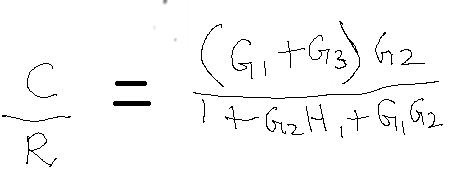 C/R = (G₁ + G₃) G₂ / 1 + G₂H₁ + G₁G₂